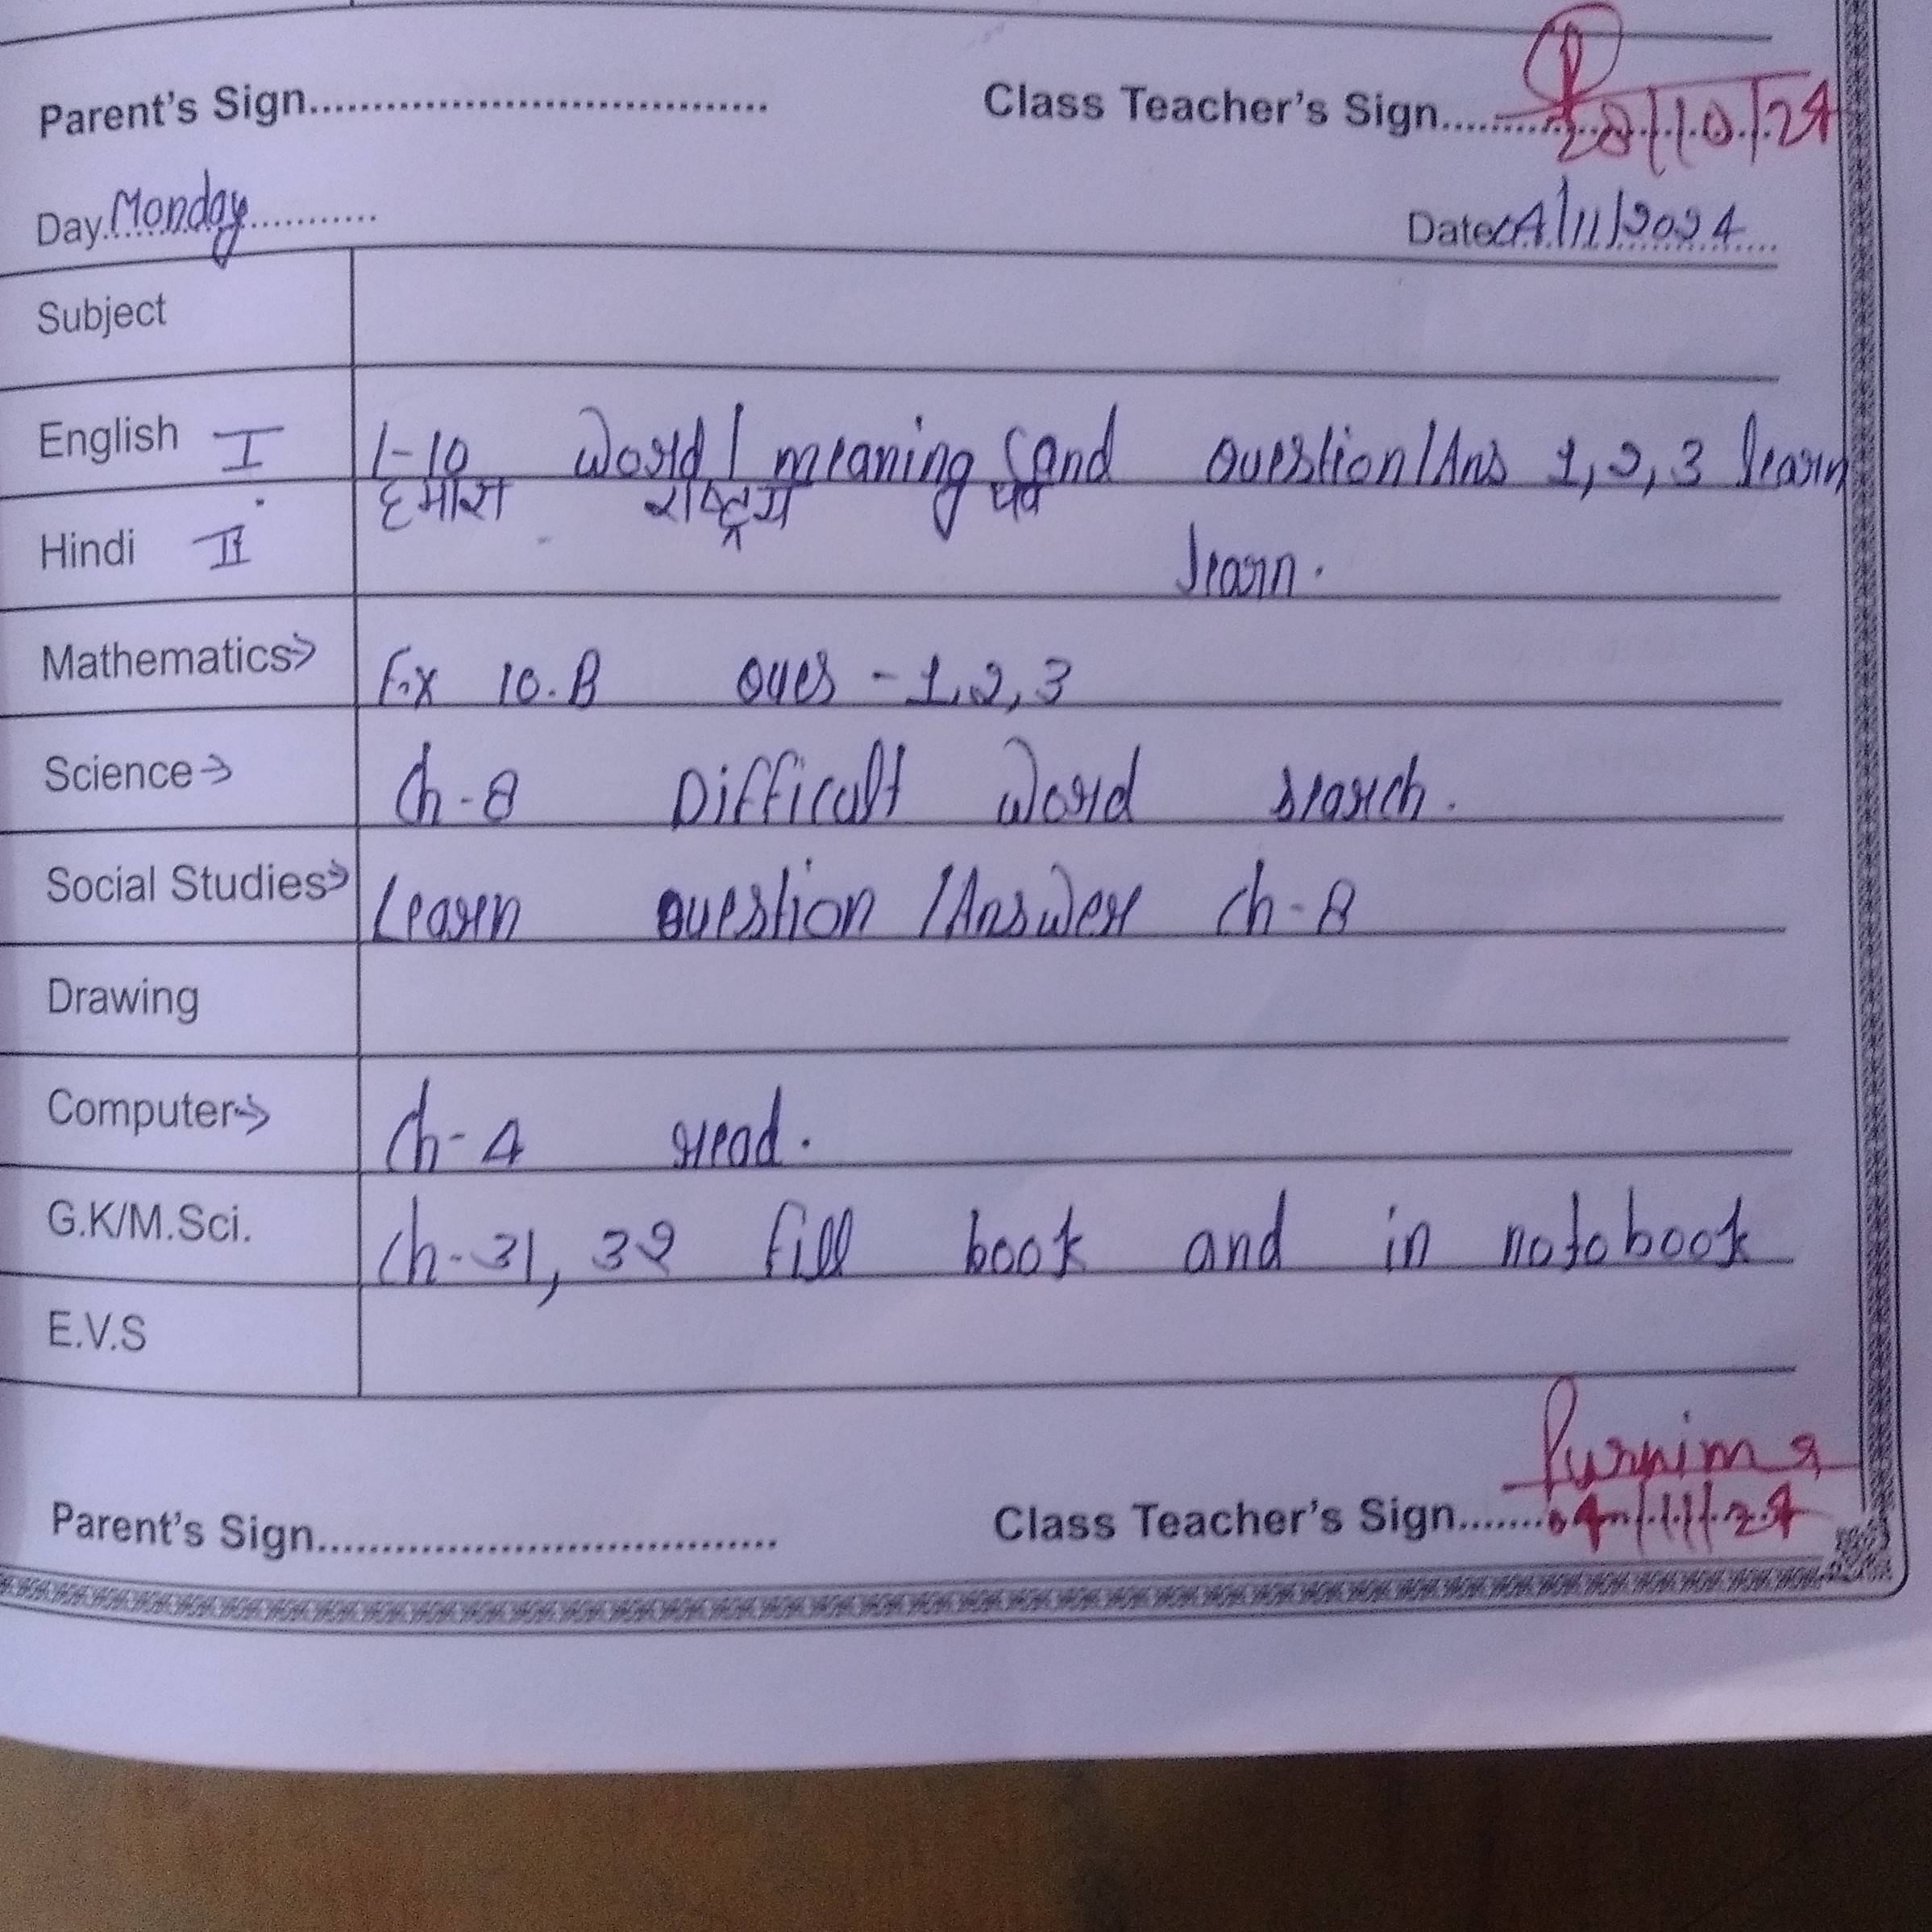 Parent's Sign.................................... Class Teacher's Sign.............
28/10/24
Day Monday Date 04/11/2024
Subject
English I 1-10 word/meaning and question/Ans 1, 2, 3 learn
Hindi II हमारा राष्ट्रय पर्व
learn.
Mathematics→ Ex 10.B Ques - 1, 2, 3
Science→ Ch-8 Difficult word search.
Social Studies→ Learn question/Answer ch-8
Drawing
Computer→ Ch-4 read.
G.K/M.Sci. Ch-31, 32 fill book and in notobook
E.V.S
Purnima
Parent's Sign.................................... Class Teacher's Sign....... 04/11/24